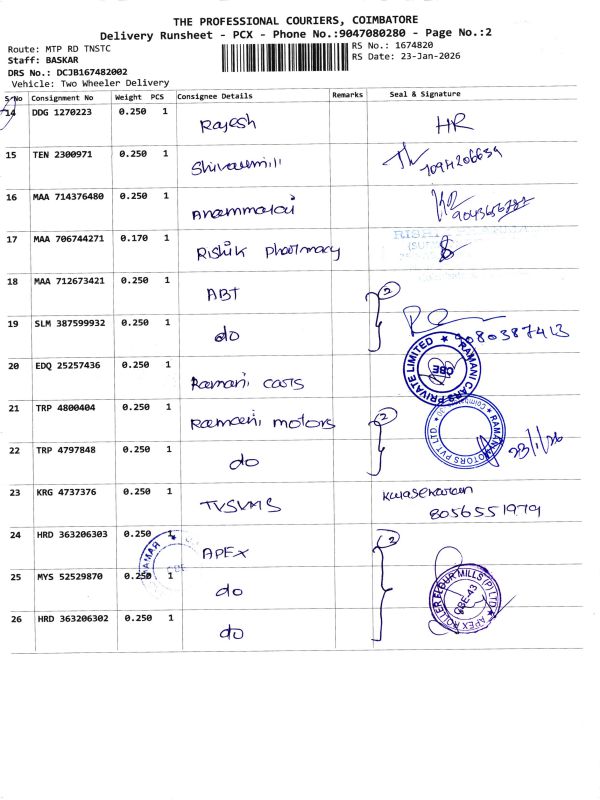 THE PROFESSIONAL COURIERS, COIMBATORE
Delivery Runsheet - PCX - Phone No.:9047080280 - Page No.:2
Route: MTP RD TNSTC
RS No.: 1674820
Staff: BASKAR
RS Date: 23-Jan-2026
DRS No.: DCJB167482002
Vehicle: Two Wheeler Delivery
S/No Consignment No Weight PCS Consignee Details Remarks Seal & Signature
14 DDG 1270223 0.250 1 Rajesh HR
15 TEN 2300971 0.250 1
16 MAA 714376480 0.250 1
17 MAA 706744271 0.170 1 Rishik Pharmacy
18 MAA 712673421 0.250 1 ABT 2
19 SLM 387599932 0.250 1 do 9080387413
20 EDQ 25257436 0.250 1 Ramani cars
RAMANI CARS PRIVATE LIMITED ★ CBE
21 TRP 4800404 0.250 1 Ramani motors 2
RAMANI MOTORS PVT LTD. ★ Coimbatore
22 TRP 4797848 0.250 1 do 23/1/26
23 KRG 4737376 0.250 1 TVSVMS
8056551979
24 HRD 363206303 0.250 1 APEX 3
25 MYS 52529870 0.250 1 do
APEX ROLLER FLOUR MILLS (P) LTD ★ CBE-43
26 HRD 363206302 0.250 1 do